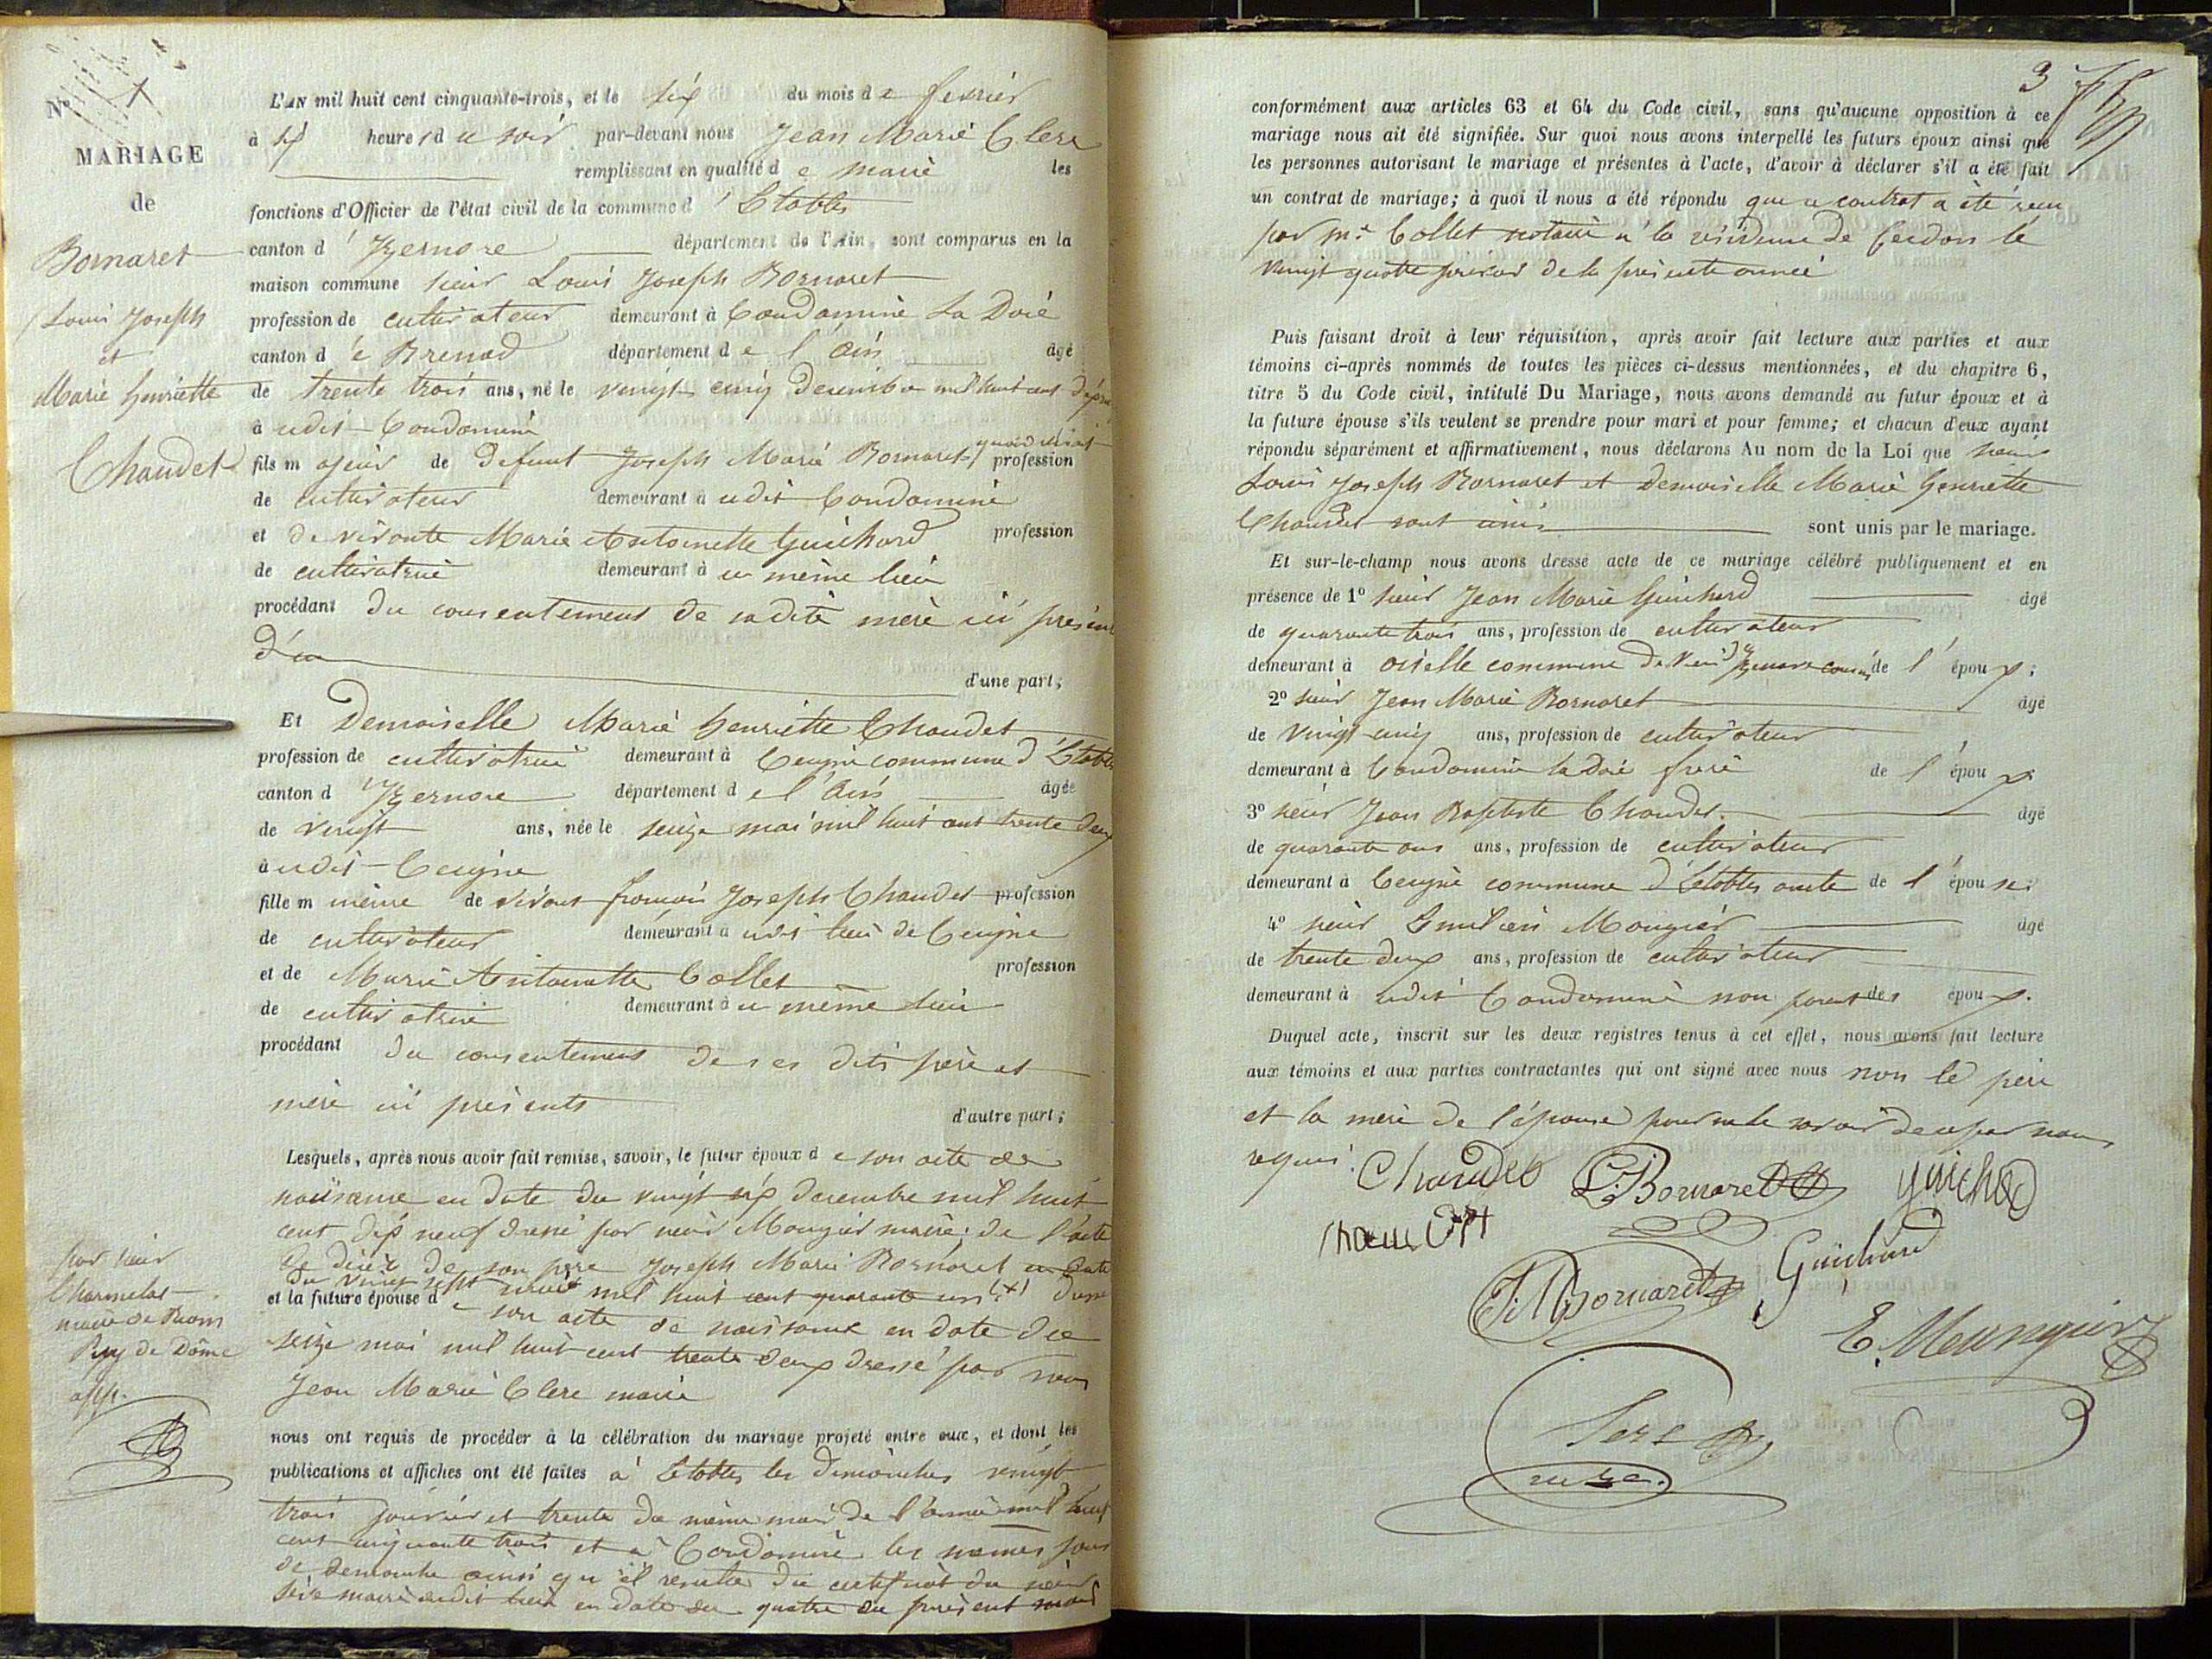 N° 1
MARIAGE
de
Bornaret
Louis Joseph
et
Marie henriette
Chaudet
L'AN mil huit cent cinquante-trois, et le six du mois de fevrier
à six heures du soir par-devant nous Jean Marie Clerc
remplissant en qualité de maire les
fonctions d'Officier de l'état civil de la commune d'Etables
canton d'Yzernore département de l'Ain, sont comparus en la
maison commune sieur Louis Joseph Bornaret
profession de cultivateur demeurant à Condamine La Doie
canton de Brenod département de l'Ain âgé
de trente trois ans, né le vingt cinq decembre mil huit cent dix neuf
à udit Condamine
fils majeur de defunt Joseph Marie Bornaret quand vivait profession
de cultivateur demeurant à udit Condamine
et de vivante Marie Antoinette Guichard profession
de cultivatrice demeurant à ce même lieu
procédant du consentement de sadite mère ici présente
d'une part;
Et Demoiselle Marie henriette Chaudet
profession de cultivatrice demeurant à Ceigne commune d'Etables
canton d'Yzernore département de l'Ain âgée
de vingt ans, née le seize mai mil huit cent trente deux
à udit Ceigne
fille mineure de vivant françois Joseph Chaudet profession
de cultivateur demeurant à udit lieu de Ceigne
et de Marie Antoinette Collet profession
de cultivatrice demeurant à ce même lieu
procédant du consentement de ses dits père et
mère ici présents d'autre part;
Lesquels, après nous avoir fait remise, savoir, le futur époux de son acte de
naissance en date du vingt six decembre mil huit
cent dix neuf dressé par sieur Mougier maire; de l'acte
de décès de son père Joseph Marie Bornaret en date
du vingt sept mil huit cent quarante un (+)
et la future épouse de son acte de naissance en date du
seize mai mil huit cent trente deux dressé par nous
Jean Marie Clerc maire
par sieur
Charmelat
maire de Riom
Puy de Dôme
app.
nous ont requis de procéder à la célébration du mariage projeté entre eux, et dont les
publications et affiches ont été faites à Etables les dimanches vingt
trois janvier et trente du même mois de l'année mil huit
cent cinquante trois et à Condamine les mêmes jours
de dimanche ainsi qu'il resulte du certificat du sieur
maire dudit lieu en date du quatre du présent mois
3
conformément aux articles 63 et 64 du Code civil, sans qu'aucune opposition à ce
mariage nous ait été signifiée. Sur quoi nous avons interpellé les futurs époux ainsi que
les personnes autorisant le mariage et présentes à l'acte, d'avoir à déclarer s'il a été fait
un contrat de mariage; à quoi il nous a été répondu que ce contrat a été reçu
par Me Collet notaire à la résidence de Cerdon le
vingt quatre janvier de la présente année
Puis faisant droit à leur réquisition, après avoir fait lecture aux parties et aux
témoins ci-après nommés de toutes les pièces ci-dessus mentionnées, et du chapitre 6,
titre 5 du Code civil, intitulé Du Mariage, nous avons demandé au futur époux et à
la future épouse s'ils veulent se prendre pour mari et pour femme; et chacun d'eux ayant
répondu séparément et affirmativement, nous déclarons Au nom de la Loi que sieur
Louis Joseph Bornaret et Demoiselle Marie henriette
Chaudet sont unis sont unis par le mariage.
Et sur-le-champ nous avons dressé acte de ce mariage célébré publiquement et en
présence de 1° sieur Jean Marie Guichard âgé
de quarante trois ans, profession de cultivateur
demeurant à oiselle commune de Vieu d'Yzenave cousin de l'époux;
2° sieur Jean Marie Bornaret âgé
de vingt cinq ans, profession de cultivateur
demeurant à Condamine la Doie frere de l'époux
3° sieur Jean Baptiste Chaudet âgé
de quarante ans ans, profession de cultivateur
demeurant à Ceigne commune d'Etables oncle de l'épouse;
4° sieur Emilien Mougier âgé
de trente deux ans, profession de cultivateur
demeurant à udit Condamine non parent des époux.
Duquel acte, inscrit sur les deux registres tenus à cet effet, nous avons fait lecture
aux témoins et aux parties contractantes qui ont signé avec nous non le père
et la mère de l'épouse pour ne le savoir de ce par nous
requis.
Chaudet L. Bornaret Guichard
J. M. Bornaret Guichard
E. Moungier
Clerc
maire.